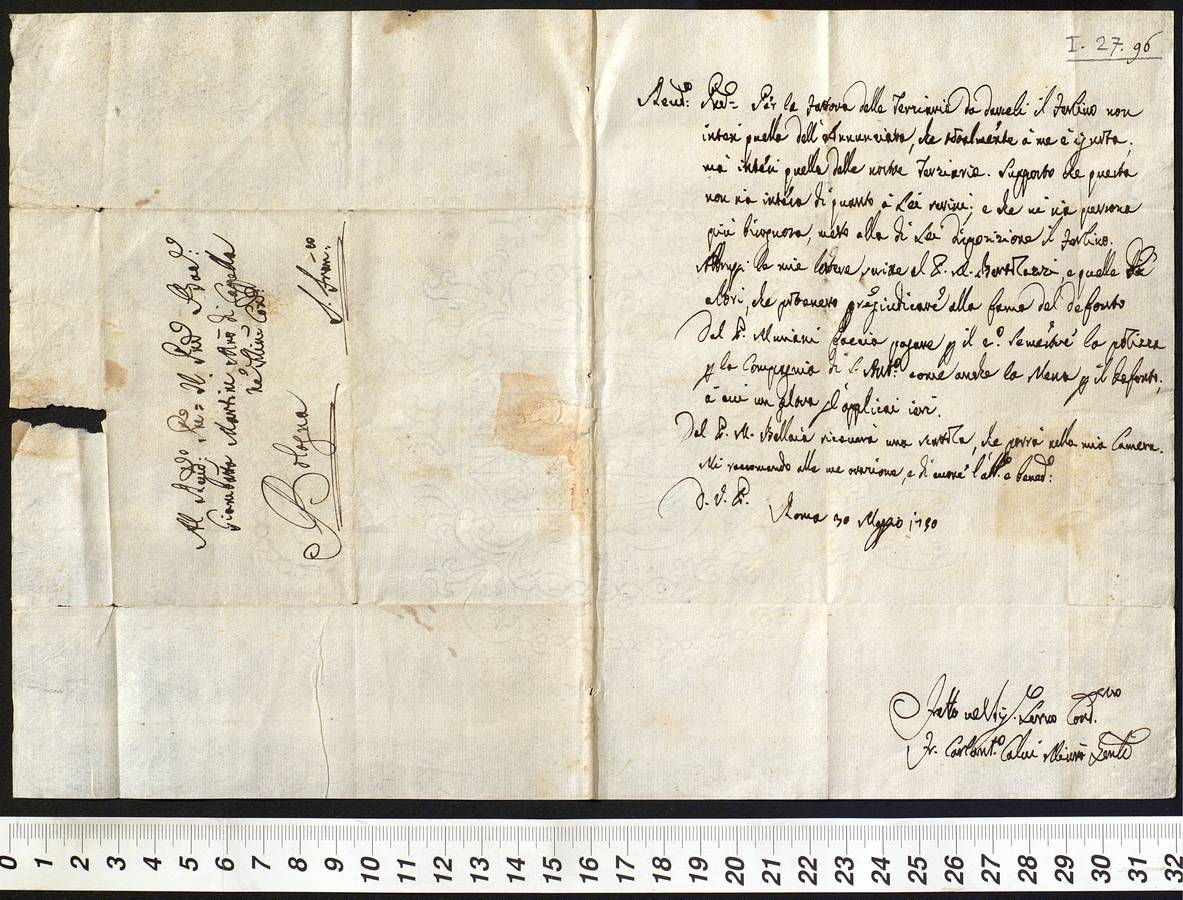 I. 27. 96
Rend.o P̃re = Per la Zittova delle Terziarie da darseli il Zecchino non
intesi quella dell'Annunziata, che totalmente à me è ignota;
mà intesi quella delle nostre Terziarie. Supposto che questa
non sia intesa di quanto à Lei scrissi; e che vi sia persona
più bisognosa, resto alla di Lei disposizione il Zecchino.
le mie lettere scritte al P. M. Bartolazzi, e quelle di
altri, che potevero pregiudicare alla fama del defonto
Del P. Muriani faccia pagare p il 2.o Semestre la polizza
p la Compagnia di S. Ant.o come anche la Messa p il defonto,
à cui un' altra l'applicai ieri.
Dal P. M. Bellaia riceverà una scatola, che porrà nella mia Camera.
Mi raccomando alle sue orazione, e di cuore l'abb.o e bened.o:
D. V. P.
Roma 30 Maggio 1750
Frate nel Sig.r Servo Cord.mo
Fr. Carlant.o Calvi Minro Genle
Al Rendo P̃re = Il P̃re Bac.
Giambatta Martini Mro di Capella
De' Minri Con.li
Bologna
S. Fran.co